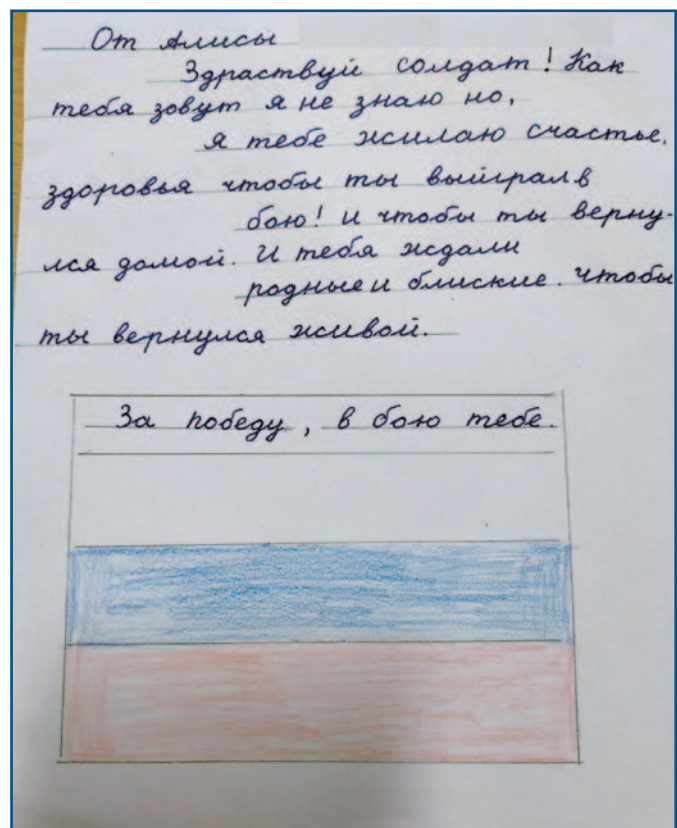 От Алисы
Здраствуй солдат! Как
тебя зовут я не знаю но,
я тебе жилаю счастье,
здоровья чтобы ты выиграл в
бою! и чтобы ты верну-
лся домой. И тебя ждали
родные и блиские. чтобы
ты вернулся живой.
За победу, в бою тебе.